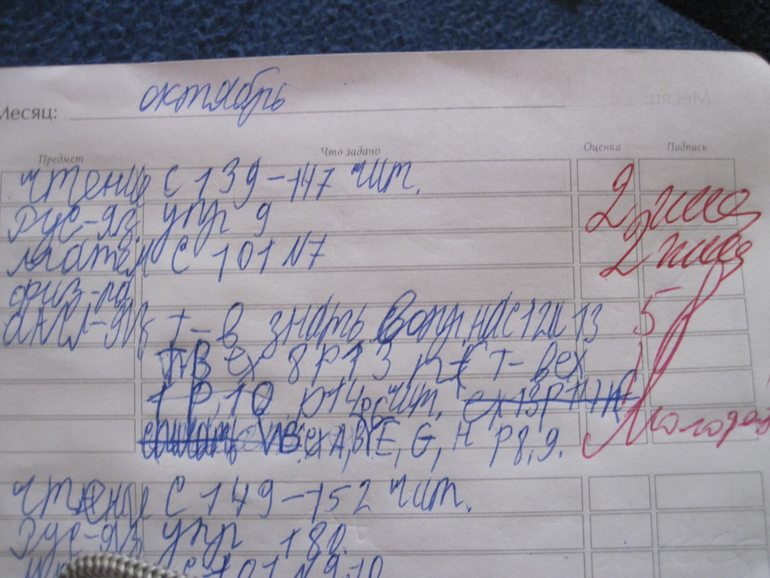 Месяц: октябрь
Предмет Что задано Оценка Подпись
чтение С 139-147 чит.
Рус-яз упр 9 2
матем С 101 N7 2
физ-ра
англ-яз т-в знать вопр. на с 12 и 13 5
AB ex 8 p, 13 т-в ex
1 p, 10 p14 чит. Молодец
WB ex A, B, E, G, H p8, 9.
чтение С 149-152 чит.
Рус-яз упр 180.
С 101 N 9, 10